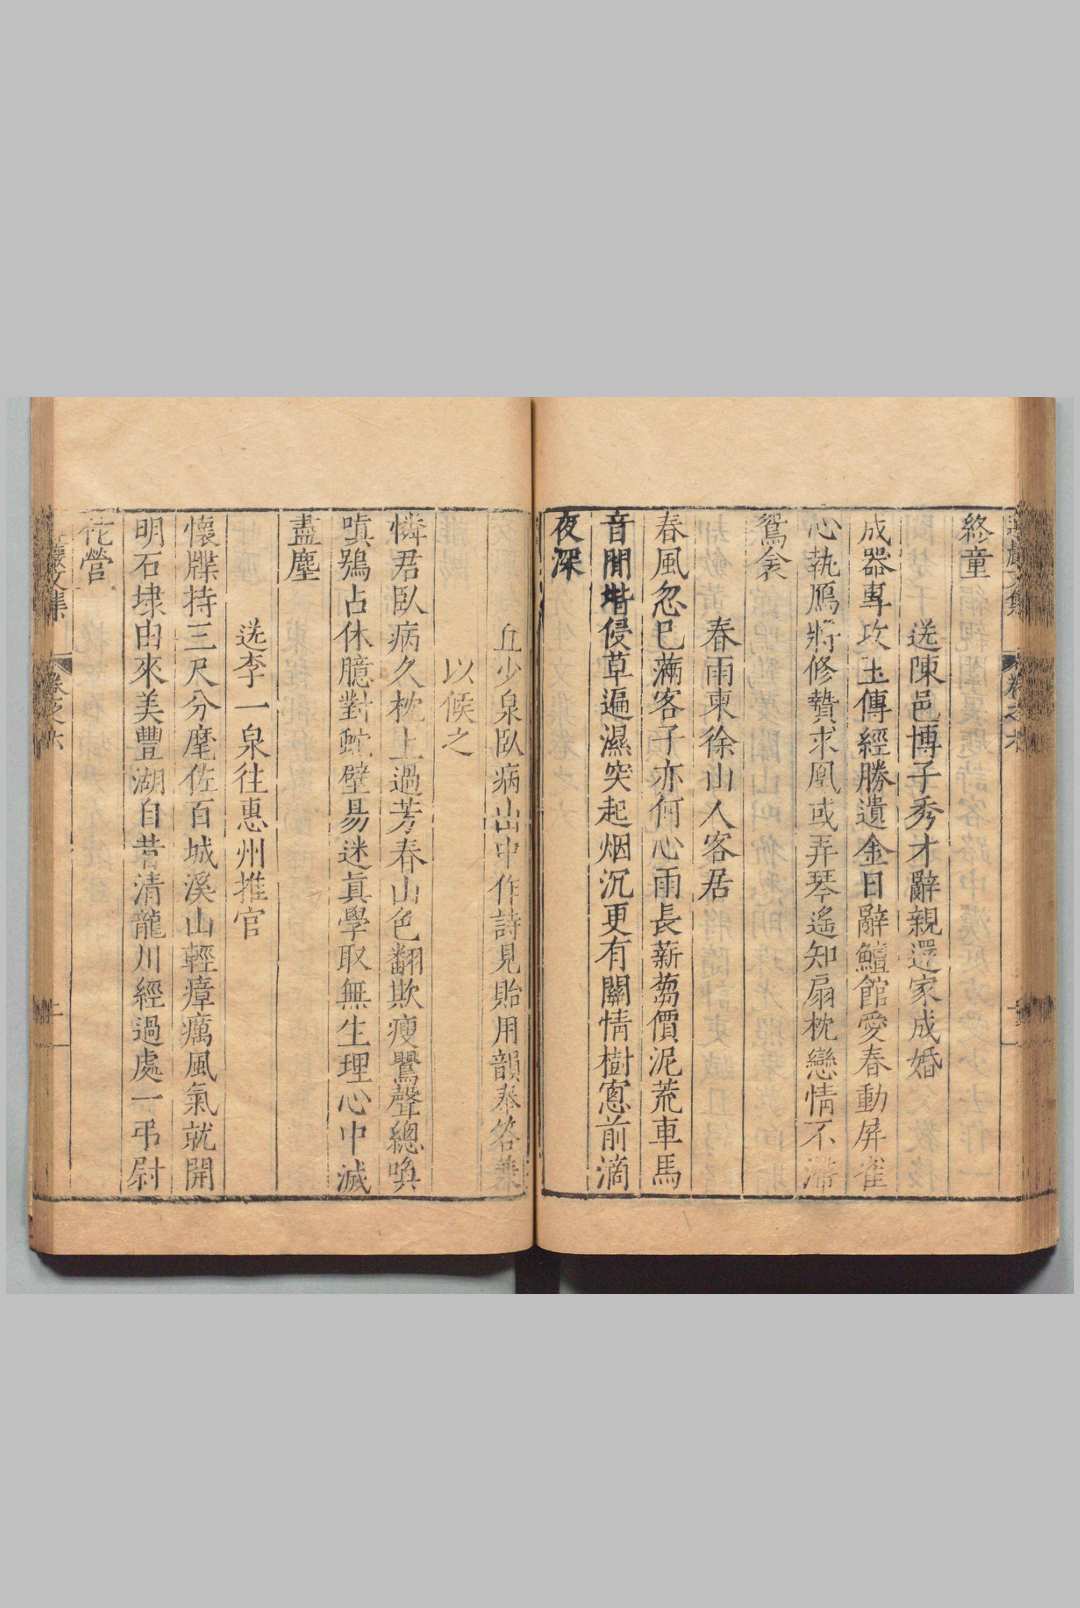 終童
送陳邑博子秀才辭親還家成婚
成器專攻玉傳經勝遺金日辭鱣館愛春動屏雀
心執鴈將修贄求凰或弄琴遙知扇枕戀情不滯
鴛衾
春雨柬徐山人客居
春風忽已滿客子亦何心雨長薪蒭價泥荒車馬
音閒堦侵草遍濕突起烟沉更有關情樹窻前滴
夜深
丘少泉臥病山中作詩見貽用韻奉答兼
以候之
憐君臥病久枕上過芳春山色翻欺瘦鸎聲總喚
嗔鵶占休臆對蛇壁易迷眞學取無生理心中滅
盡塵
送李一泉往惠州推官
懷牒持三尺分麾佐百城溪山輕瘴癘風氣就開
明石埭由來美豐湖自昔清龍川經過處一弔尉
佗營
文集
卷之六